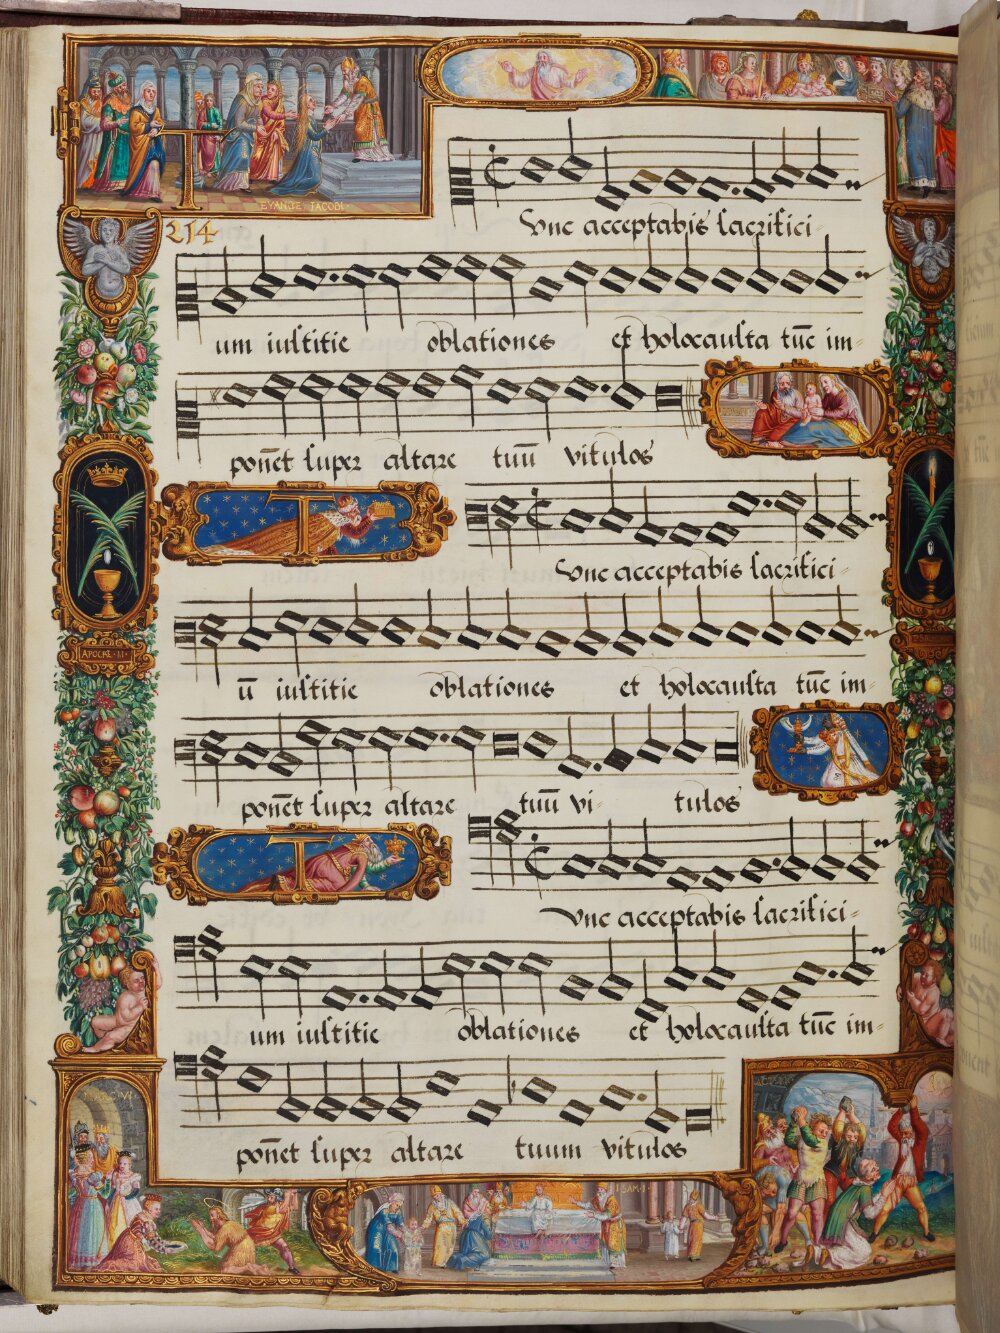 EVANGE · IACOBI ·
214
Tunc acceptabis sacrifici-
um iustitie oblationes et holocausta tūc im-
ponēt super altare tuū vitulos
Tunc acceptabis sacrifici-
ū iustitie oblationes et holocausta tūc im-
ponēt super altare tuū vi- tulos
APOCAL · II ·
Tunc acceptabis sacrifici-
um iustitie oblationes et holocausta tūc im-
ponēt super altare tuum vitulos